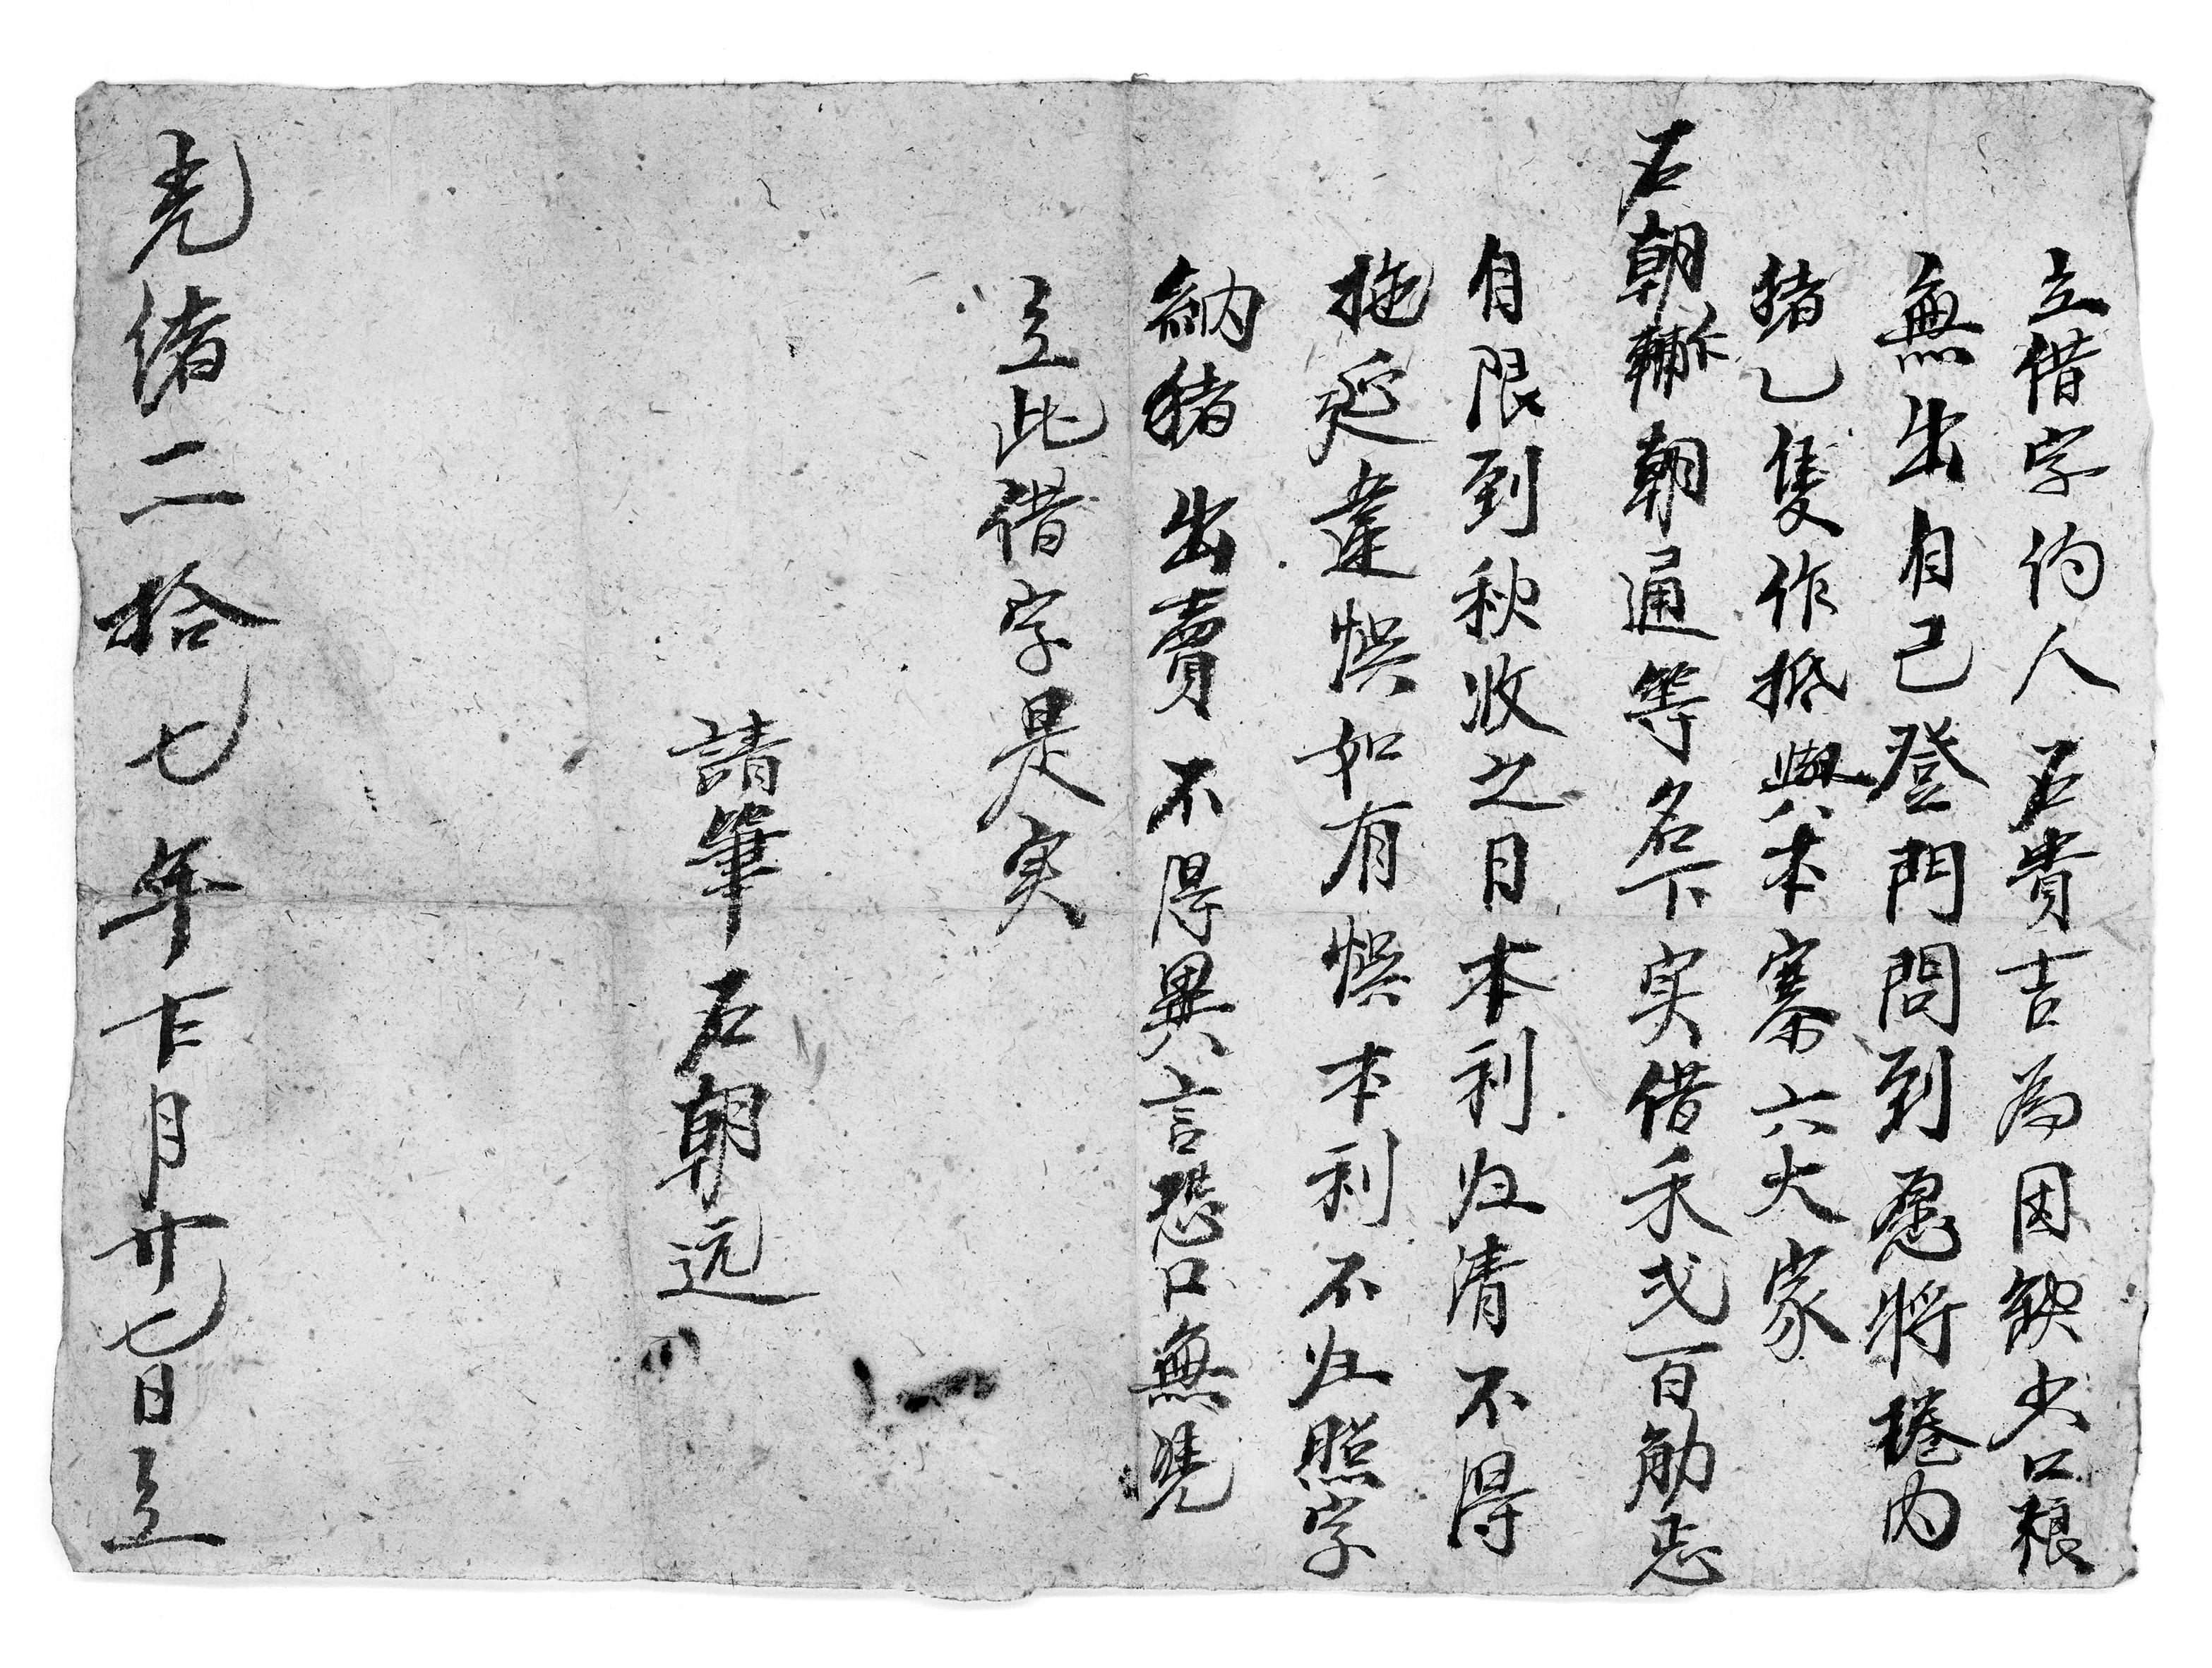 立借字约人石貴吉為因缺少口粮
無出自己登門問到愿將捲内
猪乚隻作抵與本寨六大家
石朝輔朝通等名下实借禾弍百觔忑
自限到秋收之日本利归清不得
拖延違悞如有悞本利不归照字
納猪出賣不得異言恐口無凴
立此借字是实
請筆石朝远
光緒二拾七年月廿七日立